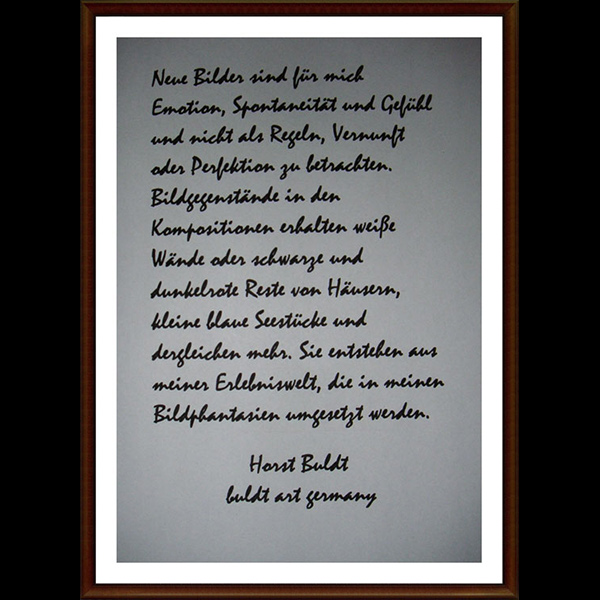 Neue Bilder sind für mich
Emotion, Spontaneität und Gefühl
und nicht als Regeln, Vernunft
oder Perfektion zu betrachten.
Bildgegenstände in den
Kompositionen erhalten weiße
Wände oder schwarze und
dunkelrote Reste von Häusern,
kleine blaue Seestücke und
dergleichen mehr. Sie entstehen aus
meiner Erlebniswelt, die in meinen
Bildphantasien umgesetzt werden.
Horst Buldt
buldt art germany